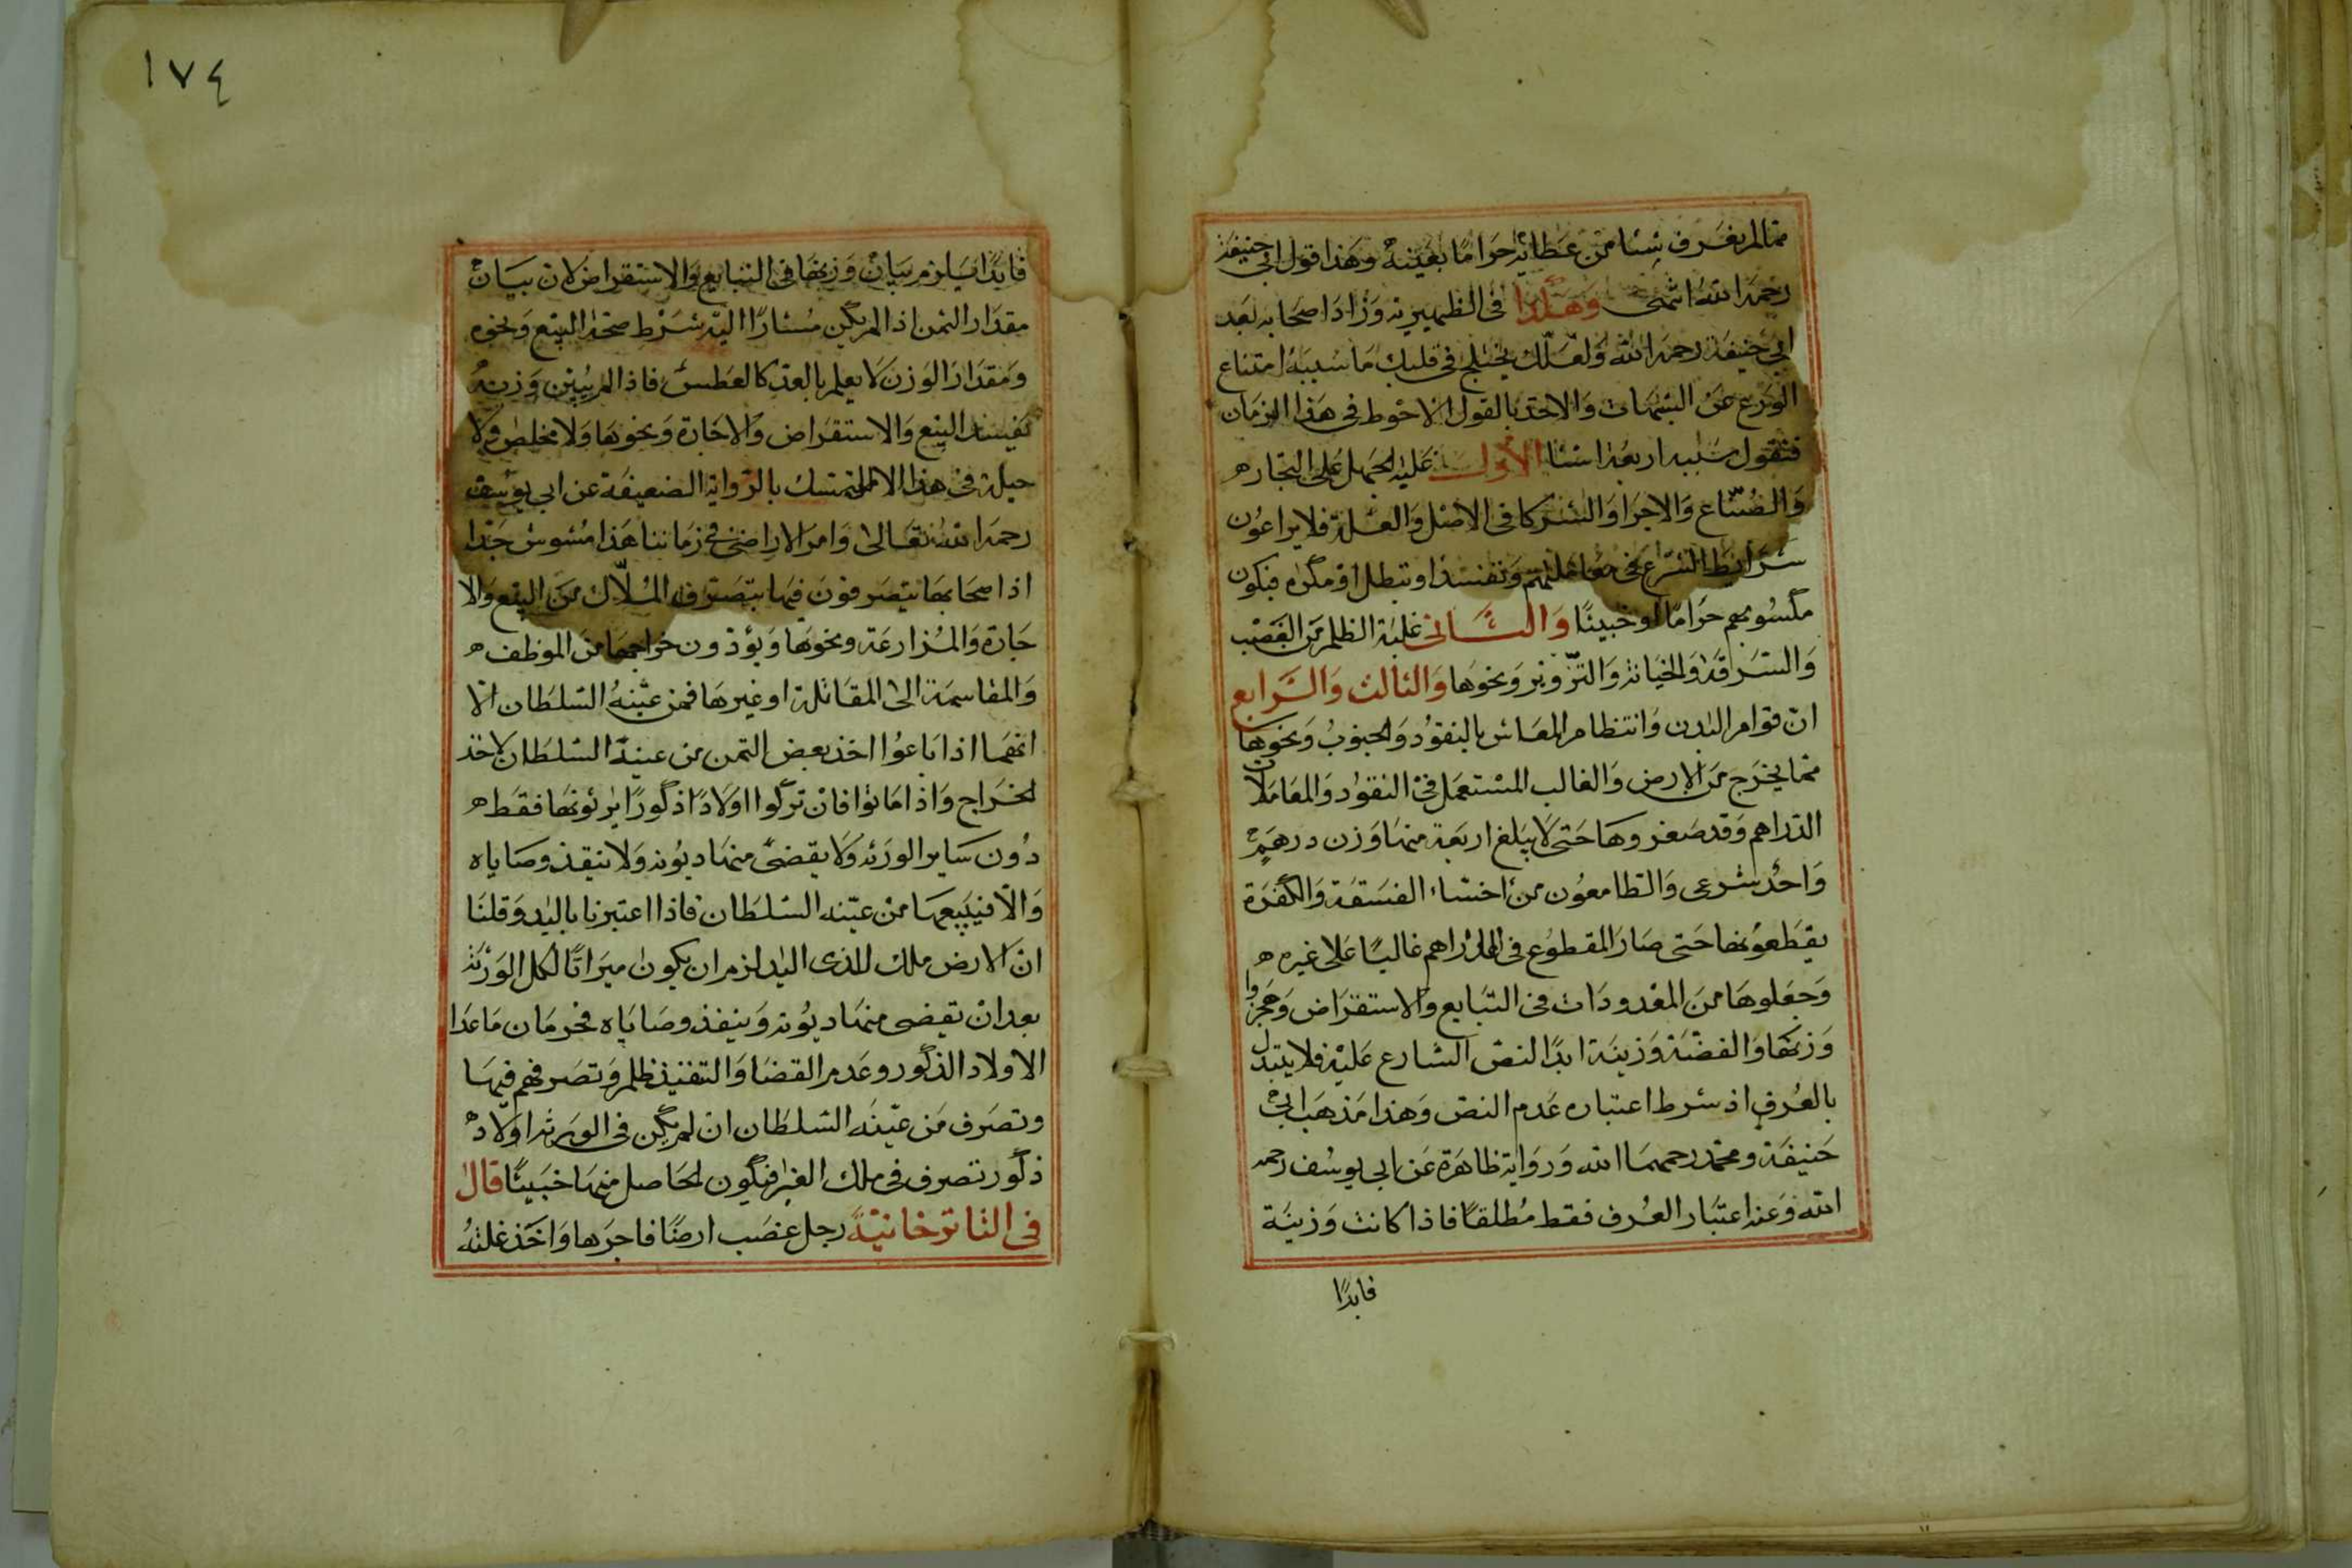 ممّا لم يعرف شيئا من عطائه حراما بعينه وهذا قول ابي حنيفة
رحمه الله انتهى وهكذا في الظهيرية وزاد اصحابه بعد
ابي حنيفة رحمه الله ولعلّك يختلج في قلبك ما سببه امتناع
الورع عن الشبهات والاخذ بالقول الاحوط في هذا الزمان
فنقول سببه اربعة اشيا الاول غلبة الجهل على التجار
والصُنّاع والاجرا والشركا في الاصل والغلة فلا يراعون
شرائط الشرع في معاملتهم وتفسد او تبطل او مكره فيكون
مكسوبهم حراما او خبيثا والثاني غلبة الظلم من الغصب
والسرقة والخيانة والتزوير ونحوها والثالث والرابع
انّ قوام البدن وانتظام المعاش بالنقود والحبوب ونحوها
مما يخرج من الارض والغالب المستعمل في النقود والمعاملات
الدراهم وقد صغروها حتى لا يبلغ اربعة منها وزن درهم
واحد شرعى والطامعون من اخسّاء الفسقة والكفرة
يقطعونها حتى صار المقطوع في الدراهم غالبا على غيره
وجعلوها من المعدودات في التبايع والاستقراض وهجروا
وزنها والفضة وزينة ابدًا لنص الشارع عليه فلا يتبدل
بالعرف اذ شرط اعتباره عدم النص وهذا مذهب ابي
حنيفة ومحمد رحمهما الله ورواية ظاهرة عن ابي يوسف رحمه
الله وعنه اعتبار العرف فقط مطلقا فاذا كانت وزينة
فابدًا
١٧٤
فابدًا يلزم بيان وزنها في التبايع والاستقراض لان بيان
مقدار الثمن اذا لم يكن مشارًا اليه شرط صحة البيع ونحوه
ومقدار الوزن لا يعلم بالعد كالعكس فاذا لم يبين وزنه
تفسد البيع والاستقراض والاجارة ونحوها ولا مخلص ولا
حيلة في هذا الا التمسك بالرواية الضعيفة عن ابي يوسف
رحمه الله تعالى وامر الاراضي في زماننا هذا مشوش جدًا
اذ اصحابها يتصرفون فيها بتصرف المُلّاك من البيع والا
جارة والمزارعة ونحوها ويؤدون خراجها من الموظف
والمقاسمة الى المقاتلة او غيرها فمن عيّنه السلطان الا
انهما اذا باعوا اخذ بعض الثمن من عينه السلطان لاخذ
الخراج واذا ماتوا فان تركوا اولادًا ذكورًا يرثونها فقط
دون ساير الورثة ولا يقضى منها ديونه ولا ينفذ وصاياه
والّا فيبيعها من عيّنه السلطان فاذا اعتبرنا باليد وقلنا
ان الارض ملك للذى اليد لزم ان يكون ميراثًا لكل الورثة
بعد ان تقضى منها ديونه وينفذ وصاياه فحرمان ما عدا
الاولاد الذكور وعدم القضا والتنفيذ ظلم وتصرفهم فيها
وتصرف من عيّنه السلطان ان لم يكن في الورثة اولاد
ذكور تصرف في ملك الغير فيكون الحاصل منها خبيثًا قال
في التاتارخانيّة رجل غصب ارضًا فاجرها واخذ غلته